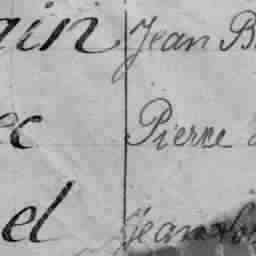 ain Jean B
ec Pierre
el Jean